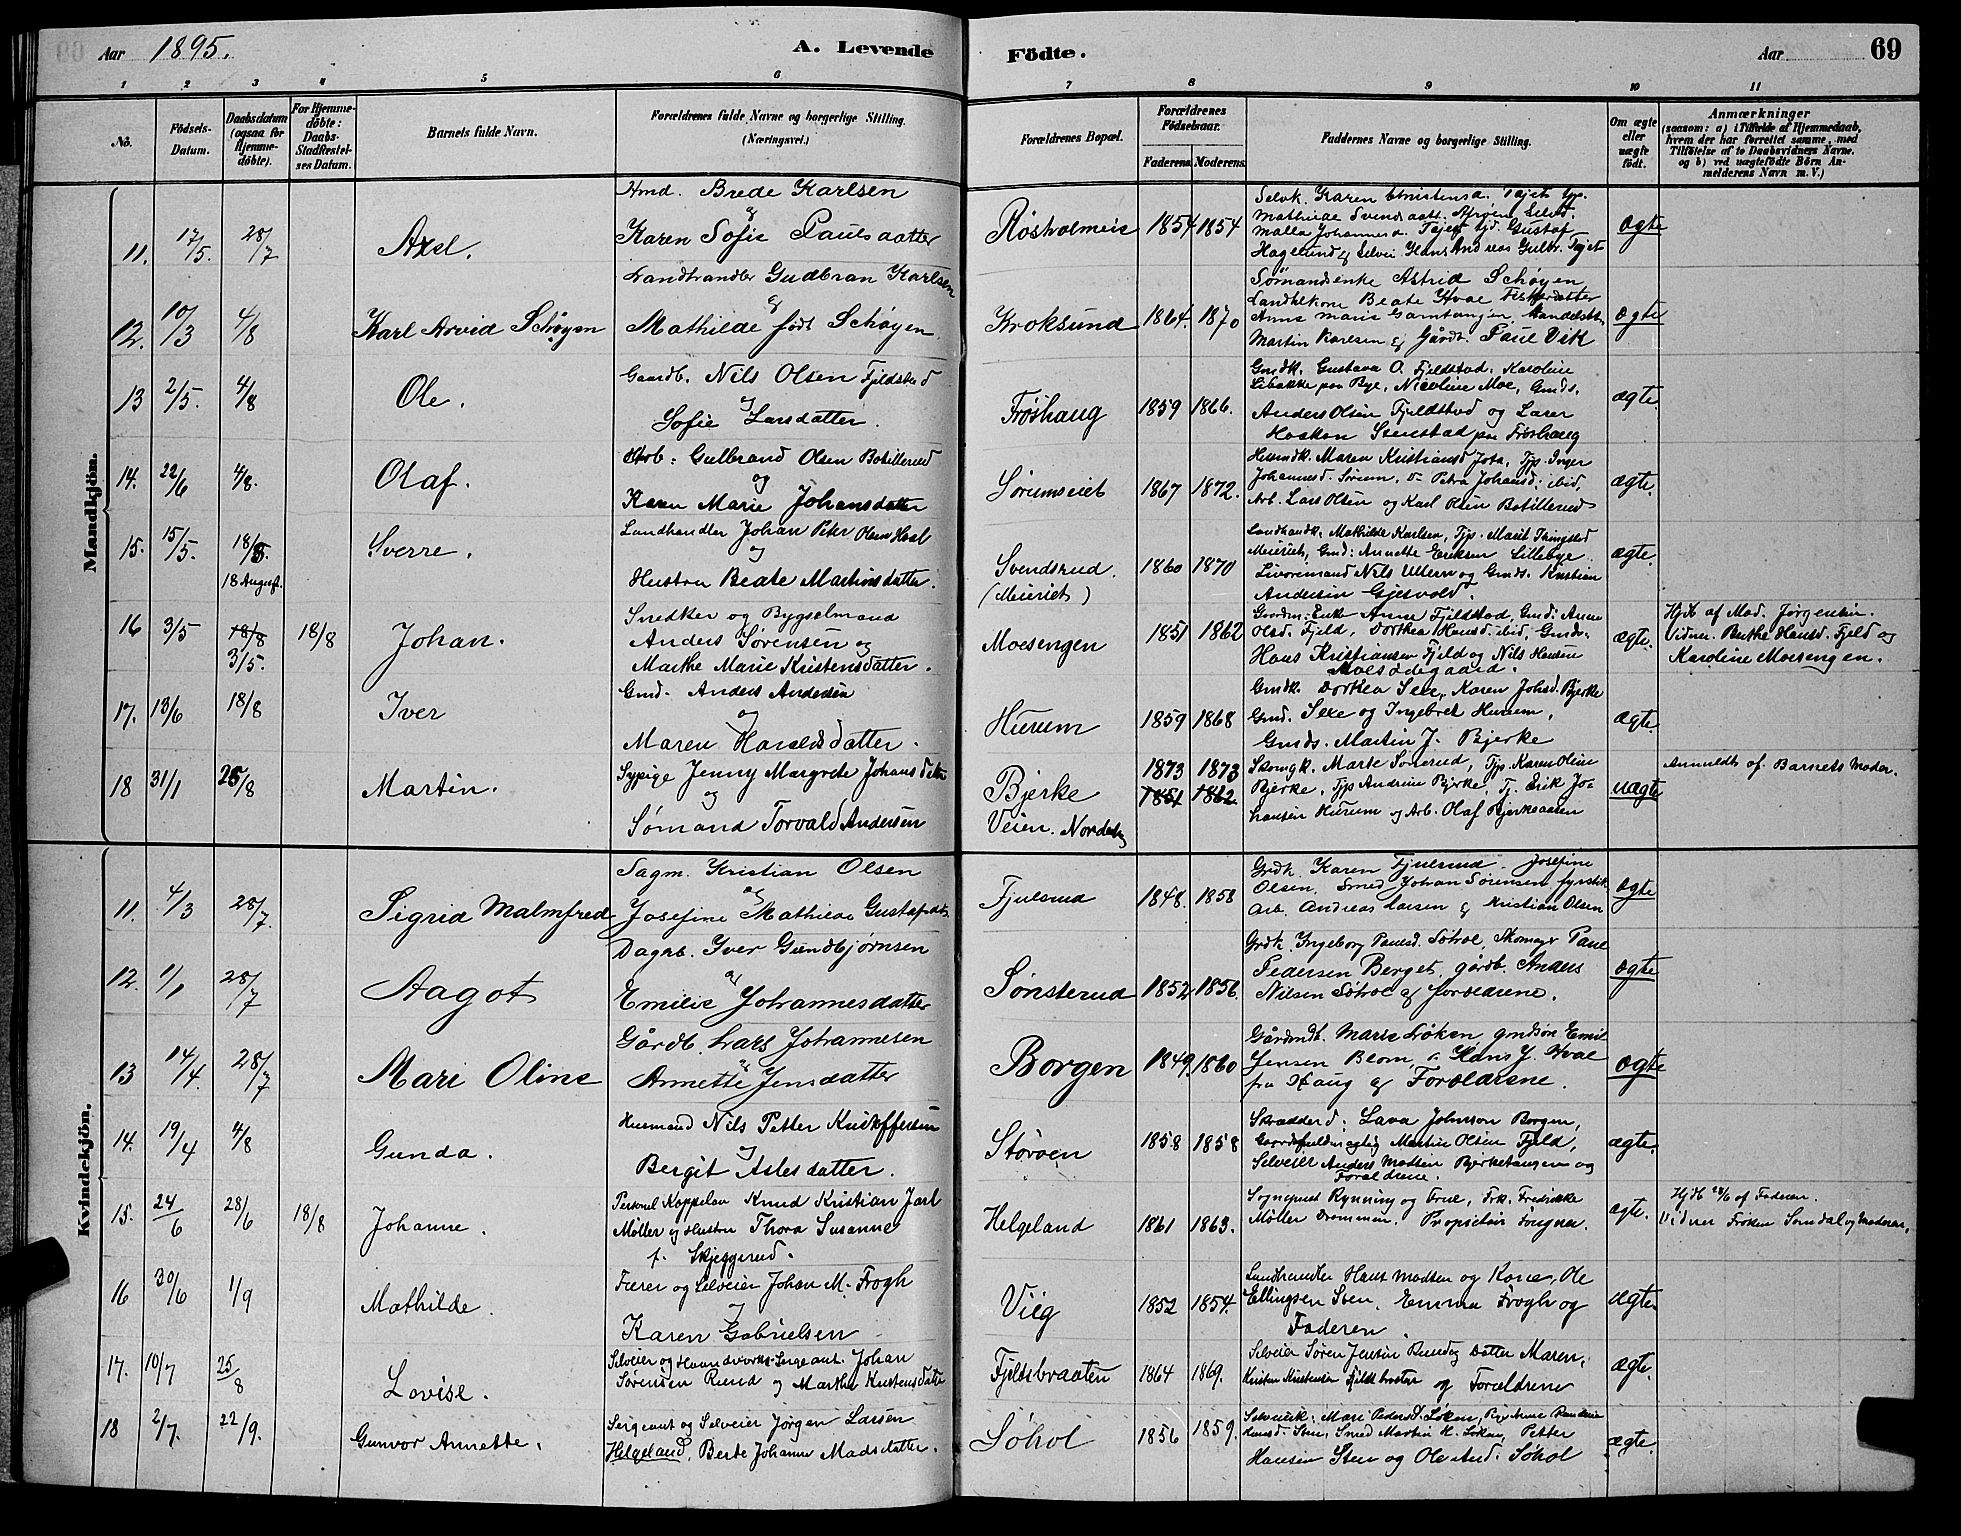 Aar 1895.
A. Levende Födte.
Aar
69
1 2 3 4 5 6 7 8 9 10 11
No.
Födsels-Datum.
Daabsdatum (ogsaa for Hjemme-döbte).
For Hjemme-döbte: Daabs-Stadfestel-ses Datum.
Barnets fulde Navn.
Forældrenes fulde Navne og borgerlige Stilling. (Næringsvei.)
Forældrenes Bopæl.
Forældrenes Födselsaar.
Faderens. Moderens.
Faddernes Navne og borgerlige Stilling.
Om ægte eller uægte födt.
Anmærkninger
(saasom: a) i Tilfælde af Hjemmedaab, hvem der har forrettet samme, med Tilföielse af to Daabsvidners Navne, og b) ved uægtefödte Börn An-melderens Navn m. V.)
Mandkjön.
11. 17/5. 28/7 Axel.
Hmd. Brede Karlsen
og
Karen Sofie Paulsdatter
Røsholmeie 1854 1854
Hagelund & Selvei Hans Andreas Gulbr. Tajet
ægte
12. 10/3 4/8 Karl Arvid Schøyen
Landhandler Gudbran Karlsen
og
Mathilde født Schøyen.
Kroksund 1864. 1870
Sømandsenke Astrid Schøyen
Martin Karlsen & Gårdb. Paul Vik
ægte
13 2/5. 4/8 Ole.
Gaardb. Nils Olsen Fjeldstad
og
Sofie Larsdatter.
Frøshaug 1859 1866.
Gmdk. Gustava O. Fjeldstad. Karoline
Libakke paa Bye, Nicoline Moe, Gmds.
Anders Olsen Fjeldstad og Lærer
Haakon Stenstad paa Frøshaug
ægte.
14. 22/6 4/8. Olaf.
Gulbrand Olsen Botillerud
og
Karen Marie Johansdatter
Sørumseiet 1867 1872.
Husmdk. Maren Kristiansd
Johannesd. Sørum, Petra Johansd. ibid,
Arb. Lars Olsen og Karl Olsen Botillerud
ægte.
15. 15/5. 18/8. 18 August. Sverre.
Landhandler Johan Peter Olsen Hval
og
Hustru Beate Martinsdatter.
Svendsrud. (Meieriet) 1860 1870
Landhandk. Mathilde Karlsen, Tjp. Marit Tingstad
Meieriet, Gmd: Annette Eriksen Lillebye.
Nils Ullern og Gmds. Kristian
Andersen Gjesvold.
ægte.
16 3/5 18/8 3/5. 18/8 Johan.
Snedker og Bygselmand
Anders Sørensen og
Marthe Marie Kristensdatter.
Moesengen 1851 1862
Anne Fjeldstad, Gmd: Anne
Olsd. Fjeld, Dorthea Hansd. ibid, Gmds.
Hans Kristiansen Fjeld og Nils Hansen
Moesødegaard.
ægte.
Hjdt af Mad. Jørgensen.
Vidner. Berthe Hansd. Fjeld og
Karoline Moesengen.
17. 13/6 18/8 Iver
Gmd. Anders Andersen
og
Maren Haraldsdatter.
Hurum 1859 1868
Gmdk. Dorthea Sexe, Karen Johsd. Bjerke
Gmd. Sexe og Ingebret Hurum,
Gmds. Martin J. Bjerke
ægte.
18 31/1 25/8 Martin.
Sypige Jenny Margrete Johansdatter
og
Sømand Torvald Andersen
Bjerke
Veien. Norderhov
1873 1873
1851 1862
Skomgk. Marte Sønerud, Tjp. Karen Oline
Bjerke, Tjp Andrine Bjerke, Tj. Erik Jo-
hansen Hurum og Arb. Olaf Bjerkeaasen
uægte
Anmeldt af Barnets Moder.
Kvindekjön.
11. 4/3 28/7. Sigrid Malmfred
Sagm. Kristian Olsen
og
Josefine Mathilde Gustafsdtr.
Fjulsrud 1848. 1858
Grdk. Karen Fjulsrud. Josefine
Olsen. Smed Johan Sørensen fyrstik
Arb. Andreas Larsen & Kristian Olsen
ægte
12. 1/1 28/7 Aagot
Dagarb. Iver Gundbjørnsen
og
Emilie Johannesdatter
Sønsterud 1852 1856.
Grdk. Ingeborg Paulsd. Søhol, Skomager Paul
Pedersen Berget, gårdb. Anders
Nilsen Søhol og forældrene.
ægte
13 14/4. 28/7 Mari Oline
Gårdb. Lars Johannesen
og
Annette Jensdatter
Borgen 1849. 1860
Gårdmdt. Marie Løken, gmdsøn Emil
Jensen Blom, Hans J. Hval
fra Haug og Forældrene.
ægte
14. 19/4 4/8 Gunda.
Husmand Nils Petter Kristoffersen
og
Bergit Aslesdatter.
Støvern 1858 1858
Skrædderd. Lava Johnson Borgen,
Gaardsfuldmægtig Martin Olsen Fjeld,
Selveier Anders Madsen Bjerketangen og
Forældrene.
ægte.
15. 24/6 28/6 18/8 Johanne.
Personel Kappelan Knud Kristian Jarl
Møller og Hustru Thora Susanne
f. Skjeggerud.
Helgeland 1861 1863.
Sogneprest Rynning og Frue, Frk. Fredrikke
Møller Drammen. Proprietær Fougner.
ægte.
Hjdt 28/6 af Faderen.
Vidner Frøken Somdal og Moderen.
16 30/6 1/9 Mathilde.
Furer og Selveier Johan M. Frogh
og
Karen Gabrielsen
Viig 1852 1854.
Landhandler Hans Madsen og Kone, Ole
Ellingsen Sten, Emma Frogh og
Faderen.
ægte
17. 10/7 25/8 Lovise.
Selveier og Haandværks-Sergeant. Johan
Sørensen Rund og Marthe Kristensdatter
Fjeldsbraaten 1864 1869.
Selveier Søren Jensen Rund og Datter Maren,
Kristen Kristensen Fjeldsbraaten og Forældrene
ægte.
18 2/7. 22/9. Gunvor Annette.
Sergeant og Selveier Jørgen Larsen
Helgeland, Berte Johanne Madsdatter.
Søhol 1856 1859.
Selveierk. Mari Pedersd. Løken,
Smed Martin H. Løken, Petter
Hansen Sten og Ole And. Søhol
ægte.